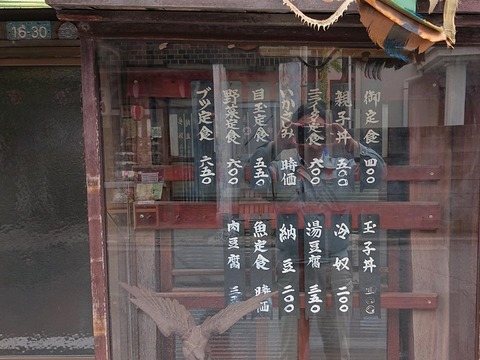 16-30
御定食 四〇〇
親子丼 五〇〇
ニライタ定食 六〇〇
いかさしみ 時価
目玉定食 五五〇
野菜定食 六〇〇
ブツ定食 六五〇
玉子丼
冷奴 二〇〇
湯豆腐 三五〇
納豆 二〇〇
魚定食 時価
肉豆腐